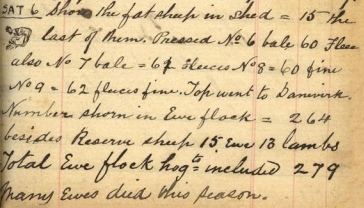 SAT 6 Shore the fat sheep in shed = 15 the
last of them. Pressed No 6 bale 60 Flece
also No 7 bale = 61 Fleeces No 8 = 60 fine
No 9 = 62 fleeces fine. Top went to Danevirk.
Number shorn in Ewe flock = 264
besides Reserve sheep 15 Ewe 13 lambs
Total Ewe flock hogts included 279
Many Ewes died this season.